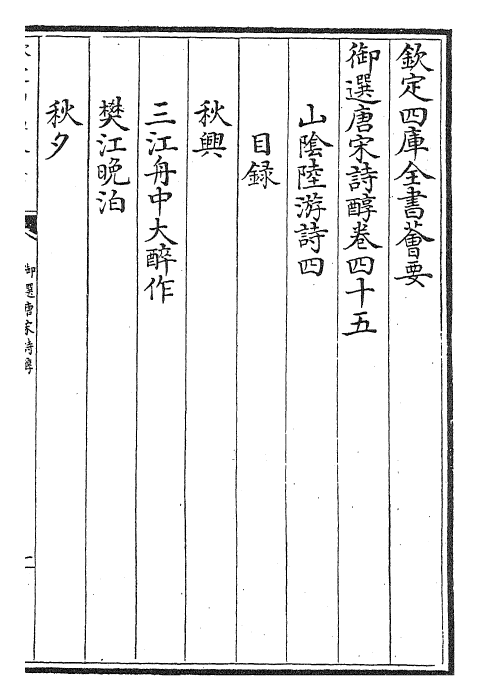 欽定四庫全書薈要
御選唐宋詩醇卷四十五
山隂陸游詩四
目録
秋興
三江舟中大醉作
樊江晩泊
秋夕
御選唐宋詩醇